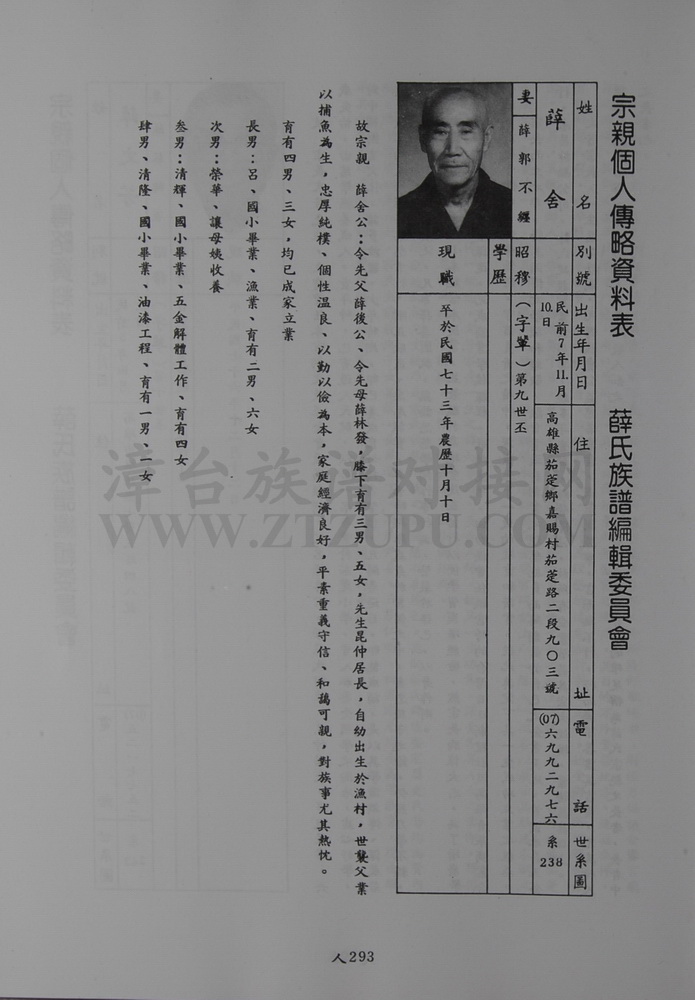 宗親個人傳略資料表 薛氏族譜編輯委員會
姓名 別號 出生年月日 住址 電話 世系圖
薛舍 民前7年11月10日 高雄縣茄萣鄉嘉賜村茄萣路二段九〇三號 (07)六九九二九七六 系238
妻 薛郭不纏 昭穆 (字輩)第九世丕
學歷
現職 卒於民國七十三年農歷十月十日
故宗親 薛舍公:令先父薛後公、令先母薛林發,膝下育有三男、五女,先生昆仲居長,自幼出生於漁村,世襲父業
以捕魚為生,忠厚純樸、個性温良、以勤以儉為本,家庭經濟良好,平素重義守信、和藹可親,對族事尤其熱忱。
育有四男、三女,均已成家立業
長男:呂、國小畢業、漁業、育有二男、六女
次男:榮華、讓母姨收養
叁男:清輝、國小畢業、五金解體工作、育有四女
肆男、清隆、國小畢業、油漆工程、育有一男、一女
漳台族谱对接网
WWW.ZTZUPU.COM
人293